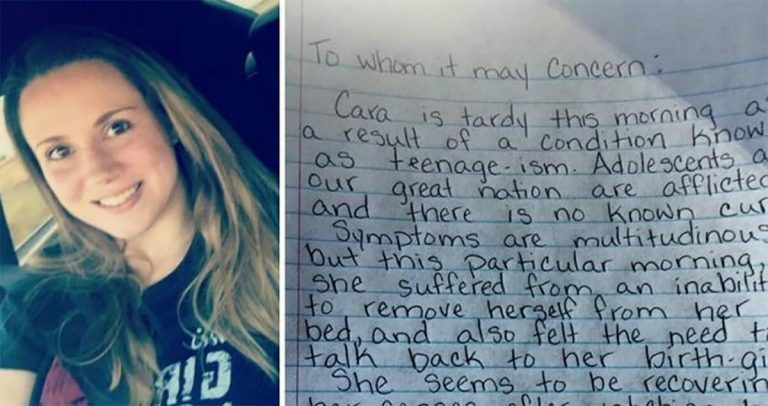 To whom it may concern:
Cara is tardy this morning a
a result of a condition know
as teenage-ism. Adolescents a
our great nation are afflicted
and there is no known cur
Symptoms are multitudinous
but this particular morning,
she suffered from an inabilit
to remove herself from her
bed, and also felt the need t
talk back to her birth-gi
She seems to be recoverin